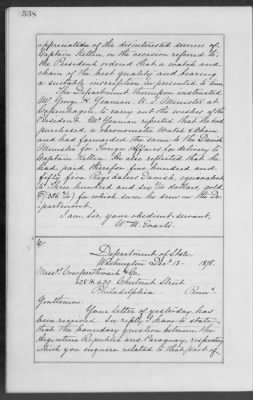 538
appreciation of the disinterested services of
Captain Kellen on the occasion referred to,
the President ordered that a watch and
chain of the best quality and bearing
a suitable inscription be presented to him.
The Department thereupon instructed
Mr. George H. Yeaman, U.S. Minister at
Copenhagen, to carry out the wishes of the
President. Mr. Yeaman reported that he had
purchased a chronometer Watch & chain
and had forwarded the same to the Danish
Minister for Foreign Affairs for delivery to
Captain Kellen. He also reported that he
had paid therefor five hundred and
fifty five Rigsdaler Danish, equivalent
to Three hundred and six dollars gold,
for which sum he drew on the De-
partment.
I am, sir, your obedient servant,
Wm. M. Evarts.
Department of State,
Washington Dec. 13. 1878.
Messrs. Cowperthwait & Co.
628 & 630 Chestnut Street
Philadelphia Penna.
Gentlemen:
Your letter of yesterday has
been received. In reply I have to state
that the boundary question between the
Argentine Republic and Paraguay, respecting
which you inquire related to that part of